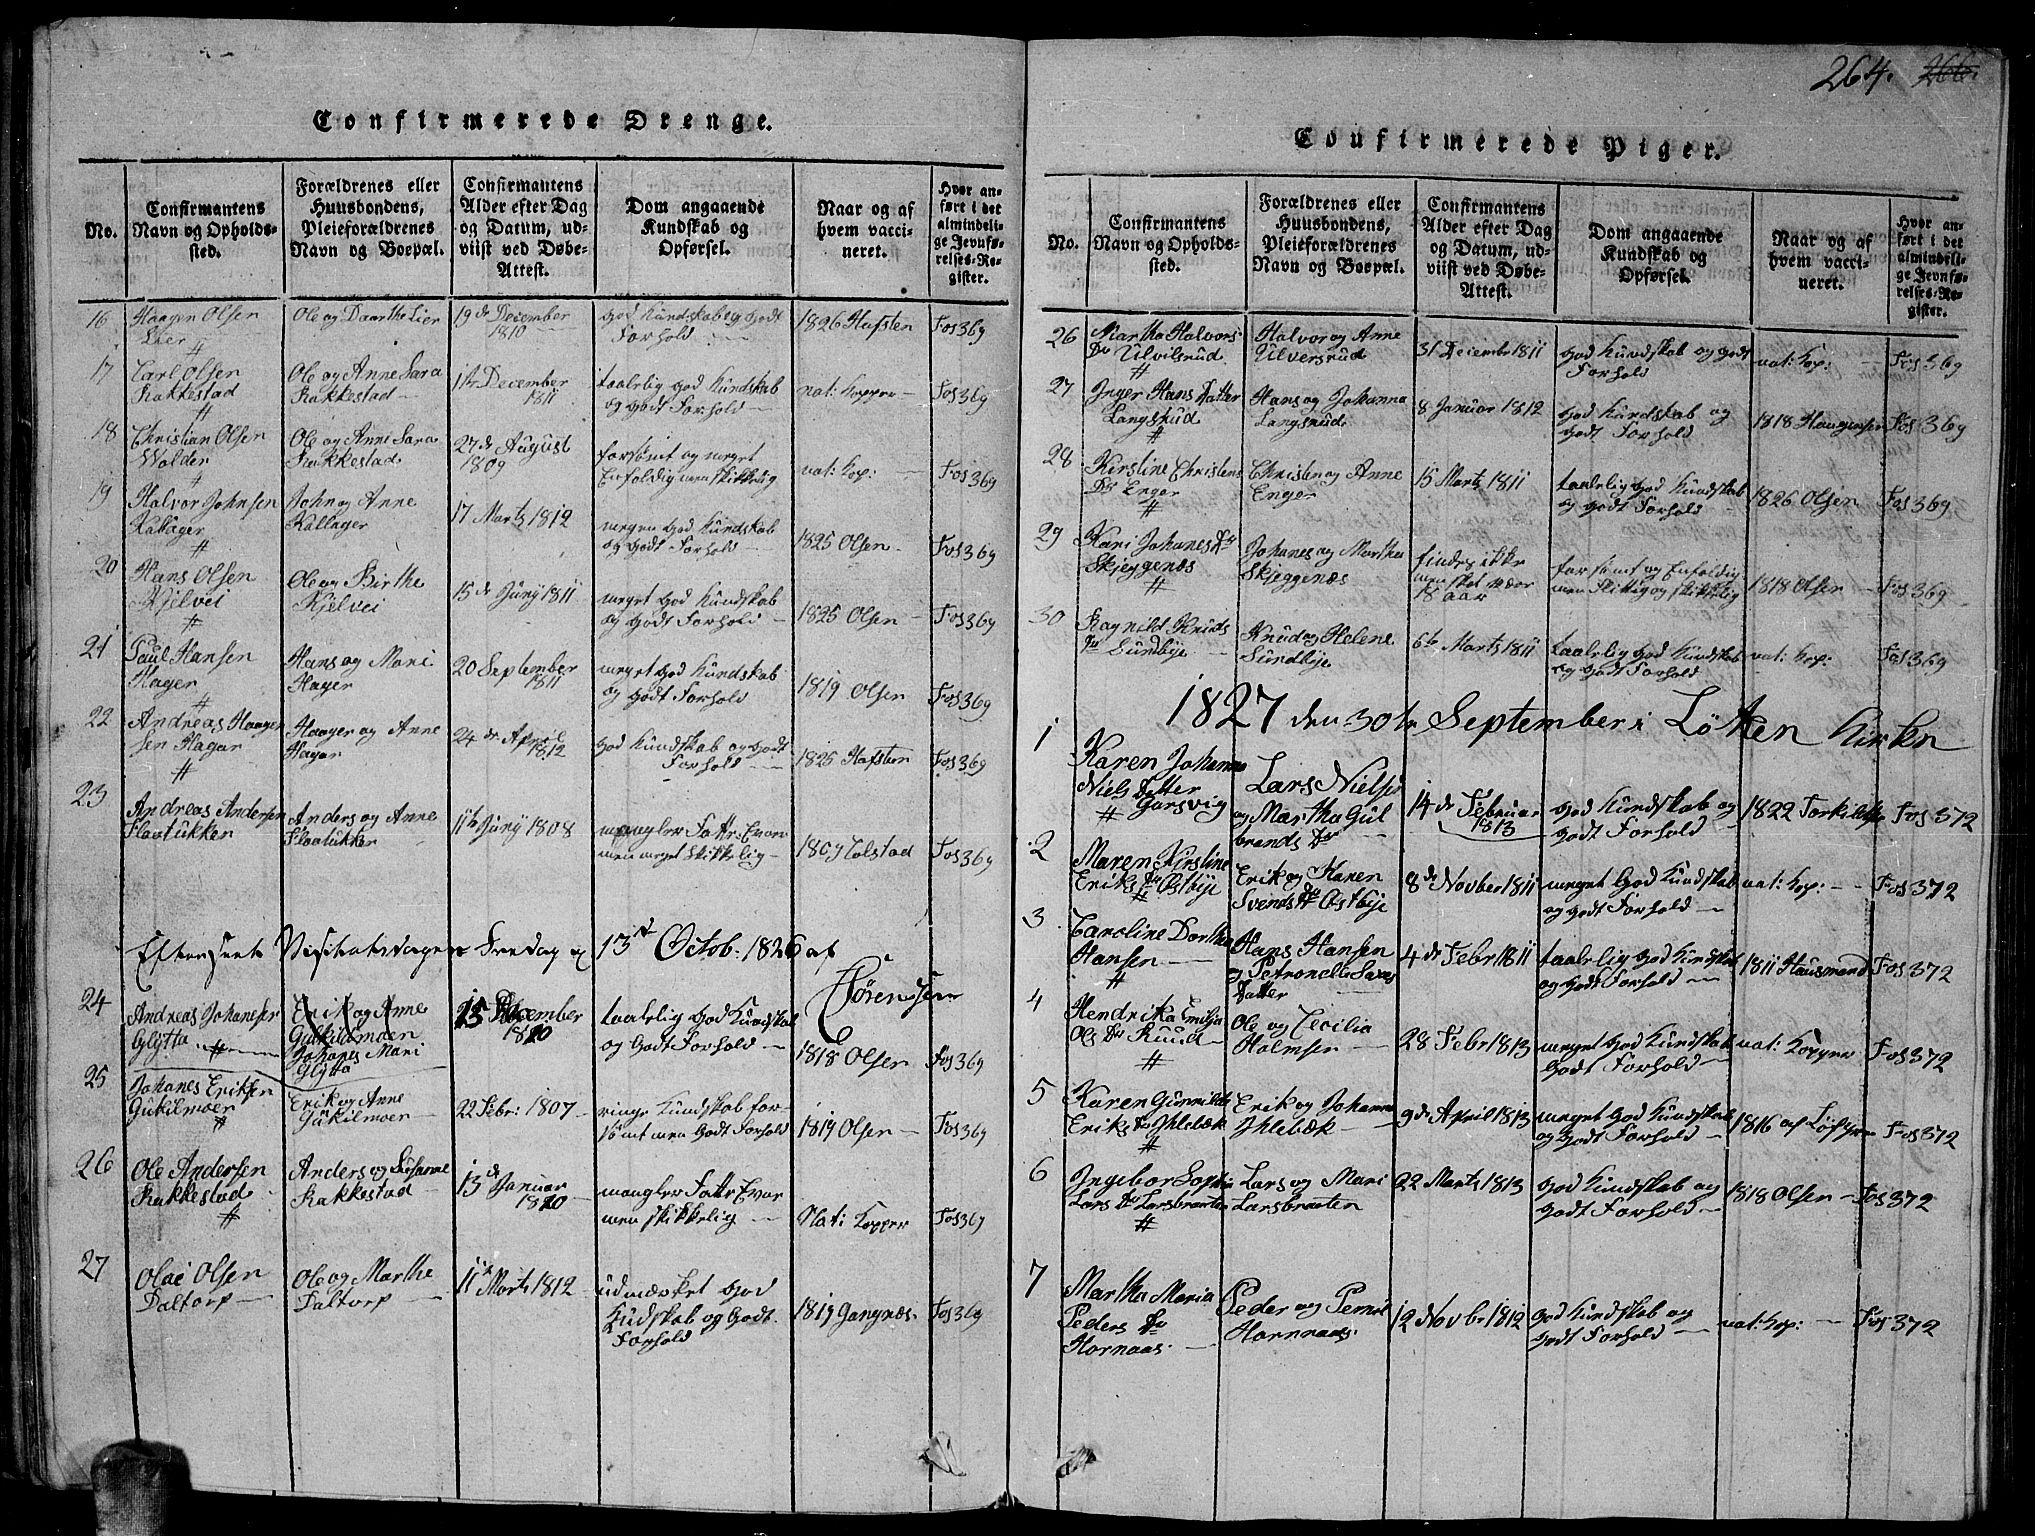 Confirmerede Drenge.
No.
Confirmantens
Navn og Opholds-
sted.
Forældrenes eller
Huusbondens,
Pleieforældrenes
Navn og Boepæl.
Confirmantens
Alder efter Dag
og Datum, ud-
viist ved Døbe-
Attest.
Dom angaaende
Kundskab og
Opførsel.
Naar og af
hvem vacci-
neret.
Hvor an-
ført i det
almindeli-
ge Jevnfø-
relses-Re-
gister.
16
Haagen Olsen
Lier
#
Ole og Daarthe Lier
19de December
1810
god Kundskab og godt
Forhold
1826 Hafsten
Fos 369
17
Carl Olsen
Rakkestad
#
Ole og Anne Sara
Rakkestad
1ste December
1811
taalelig god Kundskab
og godt Forhold
nat: Kopper
Fos 369
18
Christian Olsen
Walder
Ole og Anne Sara
Rakkestad
27de August
1809
forsømt og meget
Enfoldig men skikkelig
nat: Kop:
Fos 369
19
Halvor Johnsen
Kallager
#
John og Anne
Kallager
17 Martz 1812
megen god Kundskab
og godt Forhold
1825 Olsen
Fos 369
20
Hans Olsen
Kjelvei
#
Ole og Birthe
Kjelvei
15de Juny 1811
meget god Kundskab
og godt Forhold
1825 Olsen
Fos 369
21
Paul Hansen
Hager
#
Hans og Mari
Hager
20 September
1811
meget god Kundskab
og godt Forhold
1819 Olsen
Fos 369
22
Andreas Haagen
sen Hagar
#
Haagen og Anne
Hagar
24de April
1812
god Kundskab og godt
Forhold
1825 Hafsten
Fos 369
23
Andreas Andersen
Flaatukken
Anders og Anne
Flaatukken
11te Juny 1808
mangler Fatts Evne
men meget skikkelig
1809 Tolstad
Fos 369
Efterseet Visitatsdagen Fredag
13de Octob: 1826 af
Sørenssen
24
Andreas Johanesen
Glytta #
Erik og Anne
Gukildmoen
Johanes Mari
Glytta
15 December
1810
taalelig god Kundskab
og godt Forhold
1818 Olsen
Fos 369
25
Johanes Eriksen
Gukilmoen
#
Erik og Anne
Gukilmoen
22 Febr: 1807
ringe Kundskab for-
sømt men godt Forhold
1819 Olsen
Fos 369
26
Ole Andersen
Rakkestad
#
Anders og Susanne
Rakkestad
13de Januar
1810
mangler Fatts Evne
men skikkelig
Nat: Kopper
Fos 369
27
Olae Olsen
Daltorp
Ole og Marthe
Daltorp
11te Martz 1812
udmærket god
Kundskab og godt
Forhold
1819 Gangnæs
Fos 369
264. 266.
Confirmerede Piger.
No.
Confirmantens
Navn og Opholds-
sted.
Forældrenes eller
Huusbondens,
Pleieforældrenes
Navn og Boepæl.
Confirmantens
Alder efter Dag
og Datum, ud-
viist ved Døbe-
Attest.
Dom angaaende
Kundskab og
Opførsel.
Naar og af
hvem vacci-
neret.
Hvor an-
ført i det
almindeli-
ge Jevnfø-
relses-Re-
gister.
26
Martha Halvors
Dr Ulvilsrud
#
Halvor og Anne
Ulversrud
31 December 1811
god Kundskab og godt
Forhold
nat: Kop:
Fos 369
27
Inger Hans Datter
Langsrud
#
Hans og Johanna
Langsrud
8 Januar 1812
god Kundskab og
godt Forhold
1818 Haugensen
Fos 369
28
Kirstine Christens
Dr Enger
#
Christen og Anne
Enger
15 Martz 1811
taalelig god Kundskab
og godt Forhold
1826 Olsen
Fos 369
29
Kari Johanes Dr
Skjeggenæs
#
Johanes og Martha
Skjeggenæs
findes ikke
men skal være
18 aar
forsømt og Enfoldig
men flittig og skikkelig
1818 Olsen
Fos 369
30
Ragnild Knuds
Dr Sundbye
Knud og Helene
Sundbye
6te Martz 1811
taalelig god Kundskab
og godt Forhold
nat: Kop:
Fos 369
1827 den 30te September i Løtten Kirke
1
Karen Johanna
Niels Datter
Garsvig
#
Lars Nielsen
og Martha Gul
brands Dr
14de Februar
1813
god Kundskab og
godt Forhold
1822 Torkildsen
Fos 372
2
Maren Kirstine
Eriks Dr Østbye
#
Erik og Karen
Svends Dr Østbye
8de Novber 1811
meget god Kundskab
og godt Forhold
nat: Kop:
Fos 372
3
Caroline Dorthea
Hansen
#
Hans Hansen
og Petronelle Lars
Datter
4de Febr 1811
taalelig god Kundskab
og godt Forhold
1811 Hausmand
Fos 372
4
Hendrika Emilja
Ols Dr Ruud
#
Ole og Cecilia
Holmsen
28 Febr 1813
meget god Kundskab
godt Forhold
nat: Kopper
Fos 372
5
Karen Gunnilde
Eriks Dr Ihlebæk
#
Erik og Johanna
Ihlebæk
9de April 1813
meget god Kundskab
og godt Forhold
1816 af Løfgren
Fos 372
6
Ingebor Sophie
Lars Dr Larsbraaten
#
Lars og Mari
Larsbraaten
22 Martz 1813
god Kundskab og
godt Forhold
1818 Olsen
Fos 372
7
Martha Maria
Peders Dr
Hornaas
Peder og Pernil
Hornaas
12 Novbr 1812
god Kundskab og
godt Forhold
nat: Kop:
Fos 372